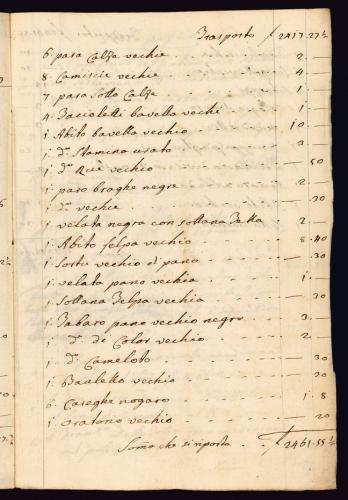 Trasporto f 2417.27½
6 para Calze vechie 2.—
8 Camiscie vechie 4.—
7 para sotto Calze 1.—
4 Facioletti bavella vechi 1.—
1 Abito bavella vechio 10.—
1 dº Stamina usato 3.—
1 dº vechio —.50
1 paro braghe negre 2.—
1 dº vechie —.30
1 velata negra con sottana 2.—
1 Abito felpa vechio 8.40
1 vechio di pano —.30
1 velata pano vechia 1.—
1 Sottana felpa vechia —.30
1 Tabaro pano vechio negro 3.—
1 dº di Color vechio 2.—
1 dº Cameloto —.30
1 Bauletto vechio —.30
6 Careghe nogaro 1.8
1 Oratorio vechio —.20
Soma che si riporta f 2461.55½